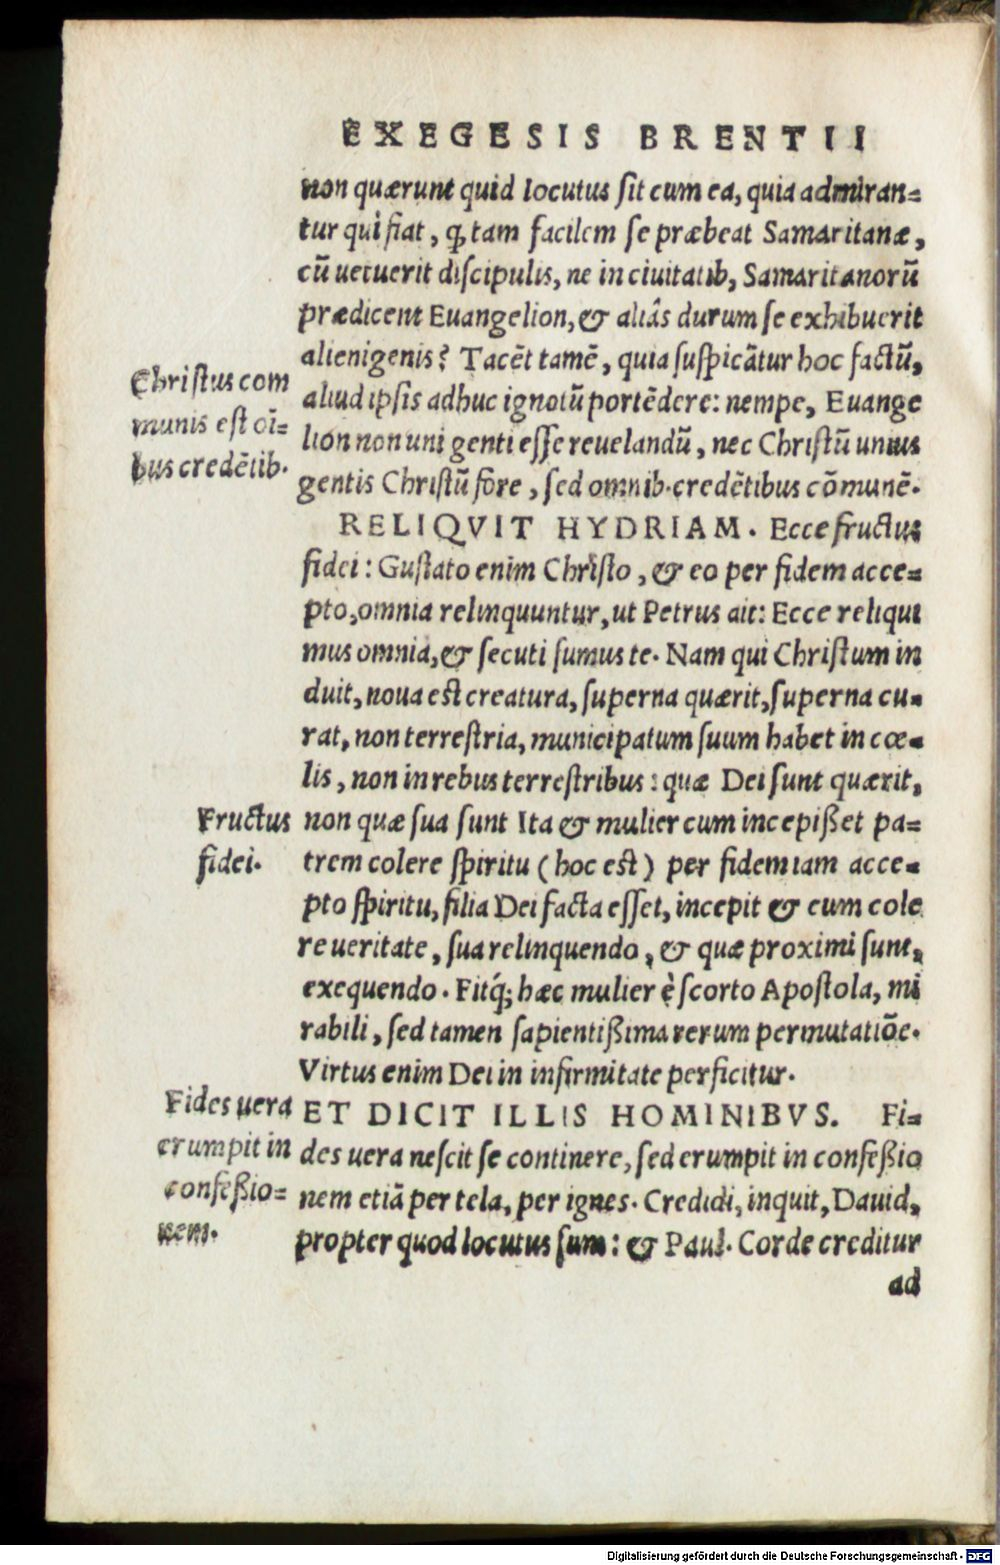 EXEGESIS BRENTII
non quærunt quid locutus sit cum ea, quia admiran=
tur quî fiat, ꝙ tam facilem se præbeat Samaritanæ,
cū uetuerit discipulis, ne in ciuitatib, Samaritanorū
prædicent Euangelion, & aliâs durum se exhibuerit
alienigenis? Tacēt tamē, quia suspicātur hoc factū,
aliud ipsis adhuc ignotū portēdere: nempe, Euange
lion non uni genti esse reuelandū, nec Christū unius
gentis Christū fore, sed omnib. credētibus cōmunē.
Christus com
munis est oī=
bus credētib.
RELIQVIT HYDRIAM. Ecce fructus
fidei: Gustato enim Christo, & eo per fidem acce=
pto, omnia relinquuntur, ut Petrus ait: Ecce reliqui
mus omnia, & secuti sumus te. Nam qui Christum in
duit, noua est creatura, superna quærit, superna cu=
rat, non terrestria, municipatum suum habet in cœ=
lis, non in rebus terrestribus: quæ Dei sunt quærit,
non quæ sua sunt Ita & mulier cum incepißet pa=
trem colere spiritu (hoc est) per fidem iam acce=
pto spiritu, filia Dei facta esset, incepit & eum cole
re ueritate, sua relinquendo, & quæ proximi sunt,
exequendo. Fitq́; hæc mulier è scorto Apostola, mi
rabili, sed tamen sapientißima rerum permutatiōe.
Virtus enim Dei in infirmitate perficitur.
Fructus
fidei.
ET DICIT ILLIS HOMINIBVS. Fi=
des uera nescit se continere, sed erumpit in confeßio
nem etiā per tela, per ignes. Credidi, inquit, Dauid,
propter quod locutus sum: & Paul. Corde creditur
Fides uera
erumpit in
confeßio=
nem.
ad
Digitalisierung gefördert durch die Deutsche Forschungsgemeinschaft - DFG